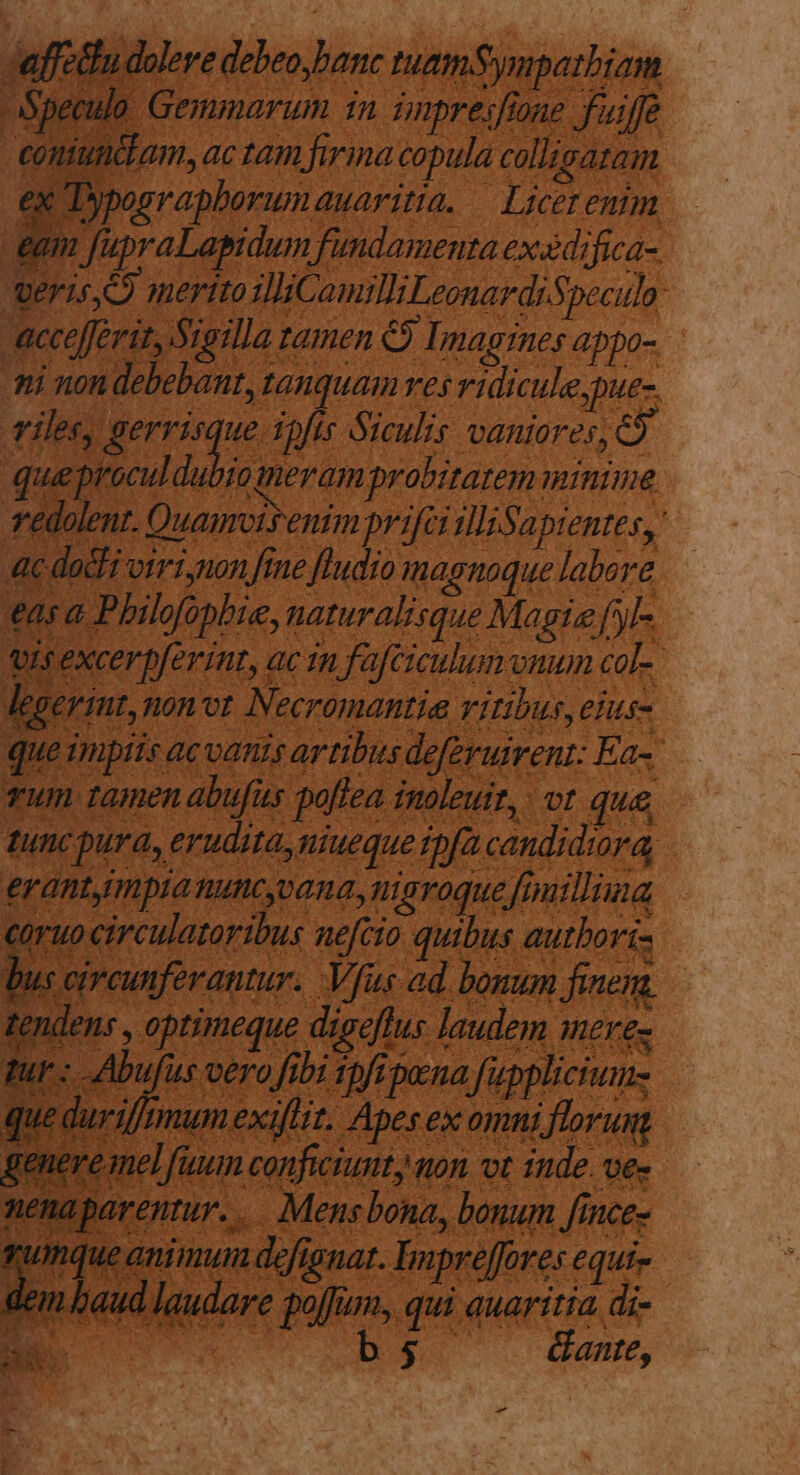 affectu dolere debeo, hanc tuam Sympathiam
Speculo Gemmarum in impresſione fuiſſe
coniunctam, ac tam firma copula colligatam
ex Typographorum auaritia. Licet enim
eam ſupra Lapidum fundamenta exædifica-
veris, & merito illi Camilli Leonardi Speculo
acceſſerit, Sigilla tamen & Imagines appo-
ni non debebant, tanquam res ridiculæ, pue-
riles, gerrisque ipſis Siculis vaniores, &
quæ procul dubio meram probitatem minime
redolent. Quamvis enim priſci illi Sapientes,
ac docti viri, non ſine ſtudio magnoque labore
eas a Philoſophiæ, naturalisque Magiæ ſyl-
vis excerpſerint, ac in faſciculum vnum col-
legerint, non vt Necromantiæ ritibus, eius-
que impiis ac vanis artibus deſeruirent: Ea-
rum tamen abuſus poſtea inoleuit, vt quæ
tunc pura, erudita, niueque ipſa candidiora
erant, impia nunc, vana, nigroque ſimillima
coruo circulatoribus neſcio quibus authori-
bus circunferantur. Vſus ad bonum finem
tendens, optimeque digeſtus laudem mere-
tur: Abuſus vero ſibi ipſi pœna ſupplicium-
que duriſſimum exiſtit. Apes ex omni florum
genere mel ſuum conficiunt, non vt inde ve-
nena parentur. Mens bona, bonum ſince-
rumque animum deſignat. Impreſſores equi-
dem haud laudare poſſum, qui auaritia di-
b 5 ctante,